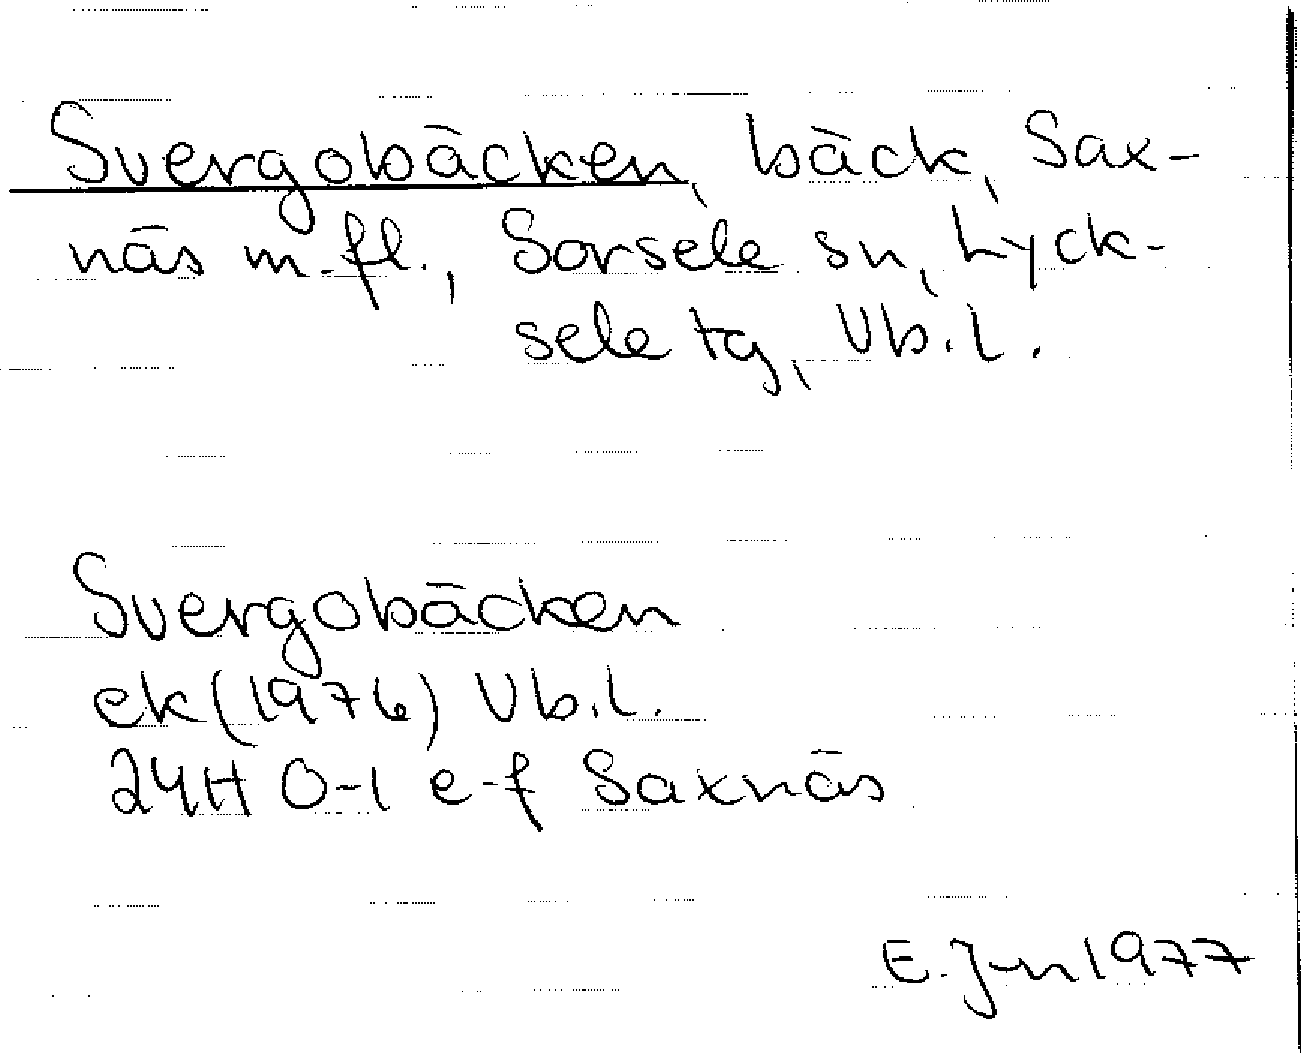 Svergobäcken, bäck, Sax-
näs m.fl., Sorsele sn, Lyck-
sele tg, Vb.l.
Svergobäcken
ek(1976) Vb.l.
24H 0-1 e-f Saxnäs
E. J-n 1977